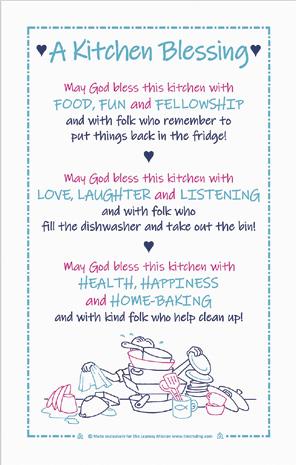 A Kitchen Blessing
May God bless this kitchen with
FOOD, FUN and FELLOWSHIP
and with folk who remember to
put things back in the fridge!
May God bless this kitchen with
LOVE, LAUGHTER and LISTENING
and with folk who
fill the dishwasher and take out the bin!
May God bless this kitchen with
HEALTH, HAPPINESS
and HOME-BAKING
and with kind folk who help clean up!